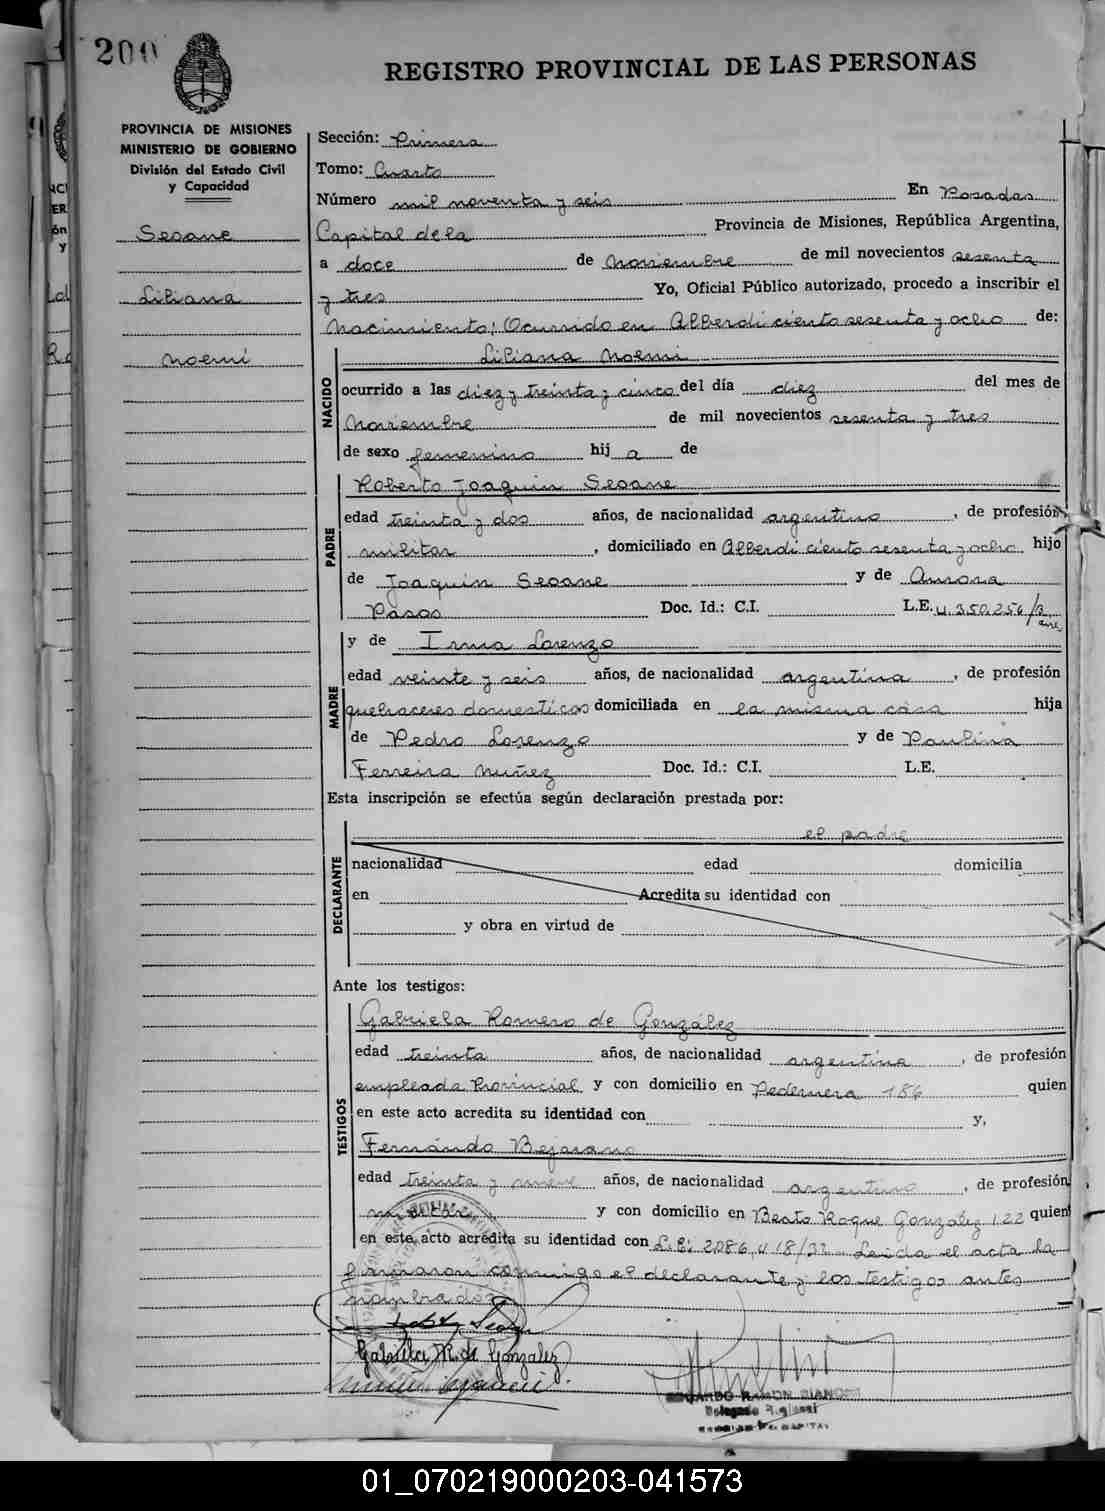 200
REGISTRO PROVINCIAL DE LAS PERSONAS
PROVINCIA DE MISIONES
MINISTERIO DE GOBIERNO
División del Estado Civil
y Capacidad
Seoane
Liliana
Noemí
Sección: Primera
Tomo: Cuarto
Número mil noventa y seis En Posadas
Capital de la Provincia de Misiones, República Argentina,
a doce de Noviembre de mil novecientos sesenta
y tres Yo, Oficial Público autorizado, procedo a inscribir el
Nacimiento: Ocurrido en Alberdi ciento sesenta y ocho de:
NACIDO
Liliana Noemi
ocurrido a las diez y treinta y cinco del día diez del mes de
Noviembre de mil novecientos sesenta y tres
de sexo femenino hij a de
PADRE
Roberto Joaquin Seoane
edad treinta y dos años, de nacionalidad argentino, de profesión
militar, domiciliado en Alberdi ciento sesenta y ocho hijo
de Joaquin Seoane y de Aurora
Pasos Doc. Id.: C.I. L.E. 4.350.256/B
aire
MADRE
y de Irma Lorenzo
edad veinte y seis años, de nacionalidad argentina, de profesión
quehaceres domesticos domiciliada en la misma casa hija
de Pedro Lorenzo y de Paulina
Ferreira Nuñez Doc. Id.: C.I. L.E.
Esta inscripción se efectúa según declaración prestada por:
DECLARANTE
el padre
nacionalidad edad domicilia
en Acredita su identidad con
y obra en virtud de
Ante los testigos:
TESTIGOS
Gabriela Romero de González
edad treinta años, de nacionalidad argentina, de profesión
empleada Provincial y con domicilio en Pedernera 186 quien
en este acto acredita su identidad con y,
Fernándo Bejarano
edad treinta y nueve años, de nacionalidad argentino, de profesión
militar y con domicilio en Beato Roque González 122 quien
en este acto acredita su identidad con L.E: 2.086.418/32 Leida el acta la
firmaron conmigo el declarante y los testigos antes
nombrados
Gabriela R. de Gonzalez
EDUARDO RAMON BIANCHI
Delegado Regional
01_070219000203-041573